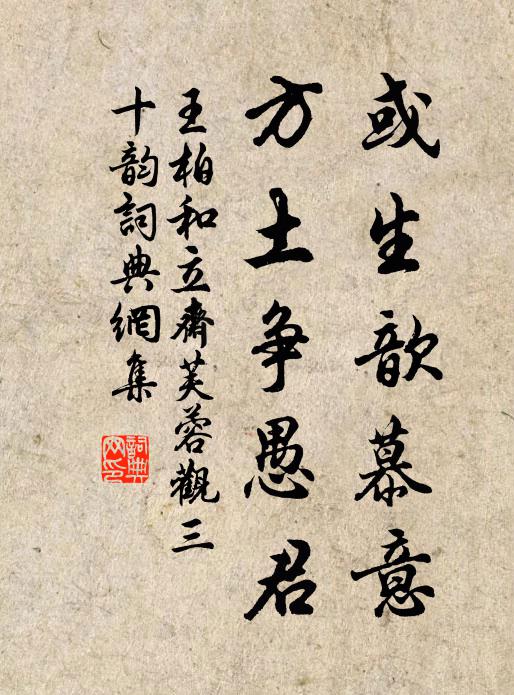 或生歆慕意
方土争愚君
王柏和立齋芙蓉觀三
十韵詞典網集